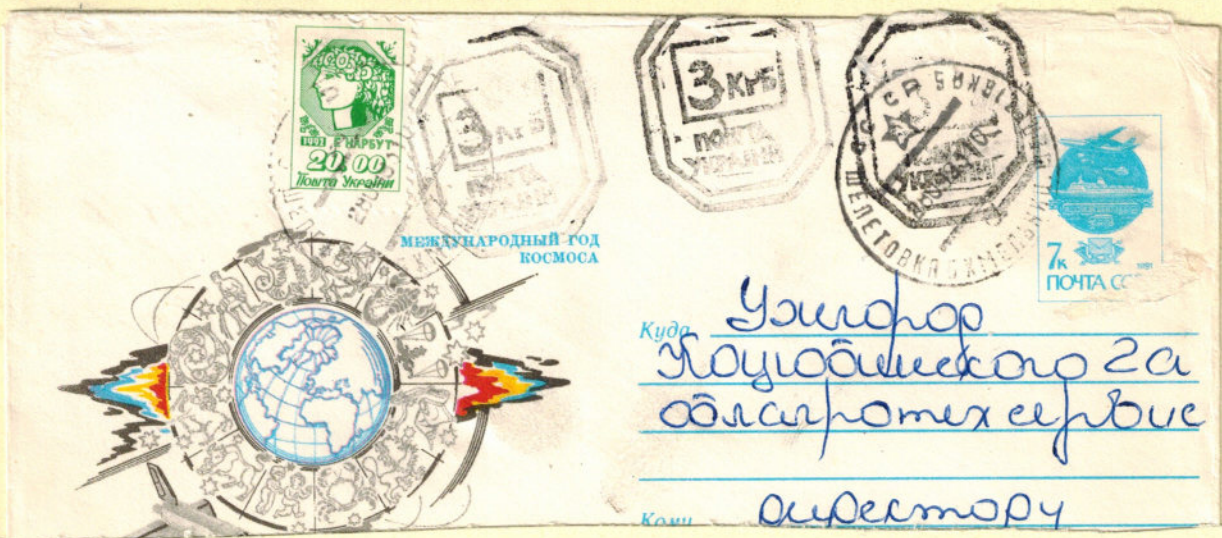 1992 Г. НАРБУТ
20.00
Пошта України
3 КРБ
ПОШТА
УКРАЇНИ
3 КРБ
ПОШТА
УКРАЇНИ
УКРАЇНИ
СССР
ШЕПЕТОВКА 5 ХМЕЛЬНИЦ
7к
1991
ПОЧТА СС
МЕЖДУНАРОДНЫЙ ГОД
КОСМОСА
Куда Ужгород
Коцюбинского 2а
облагротехсервис
Кому директору